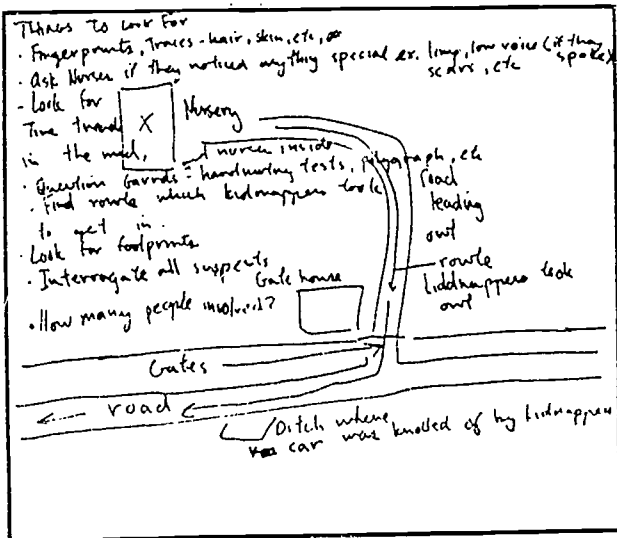 Things To Look For
· Fingerprints, Traces - hair, skin, etc,
· Ask Nurses if they noticed anything special ex. limp, low voice (if they spoke)
scars, etc
- Look for
Nursery
X
in the mud,
nurses inside
· Question Guards - handwriting tests, polygraph, etc
· Find route which kidnappers took
to get in.
· Look for footprints
· Interrogate all suspects
· How many people involved?
Gate house
road
leading
out
route
kiddnappers took
out
Gates
road
Ditch where
car was knolled of by kidnappers